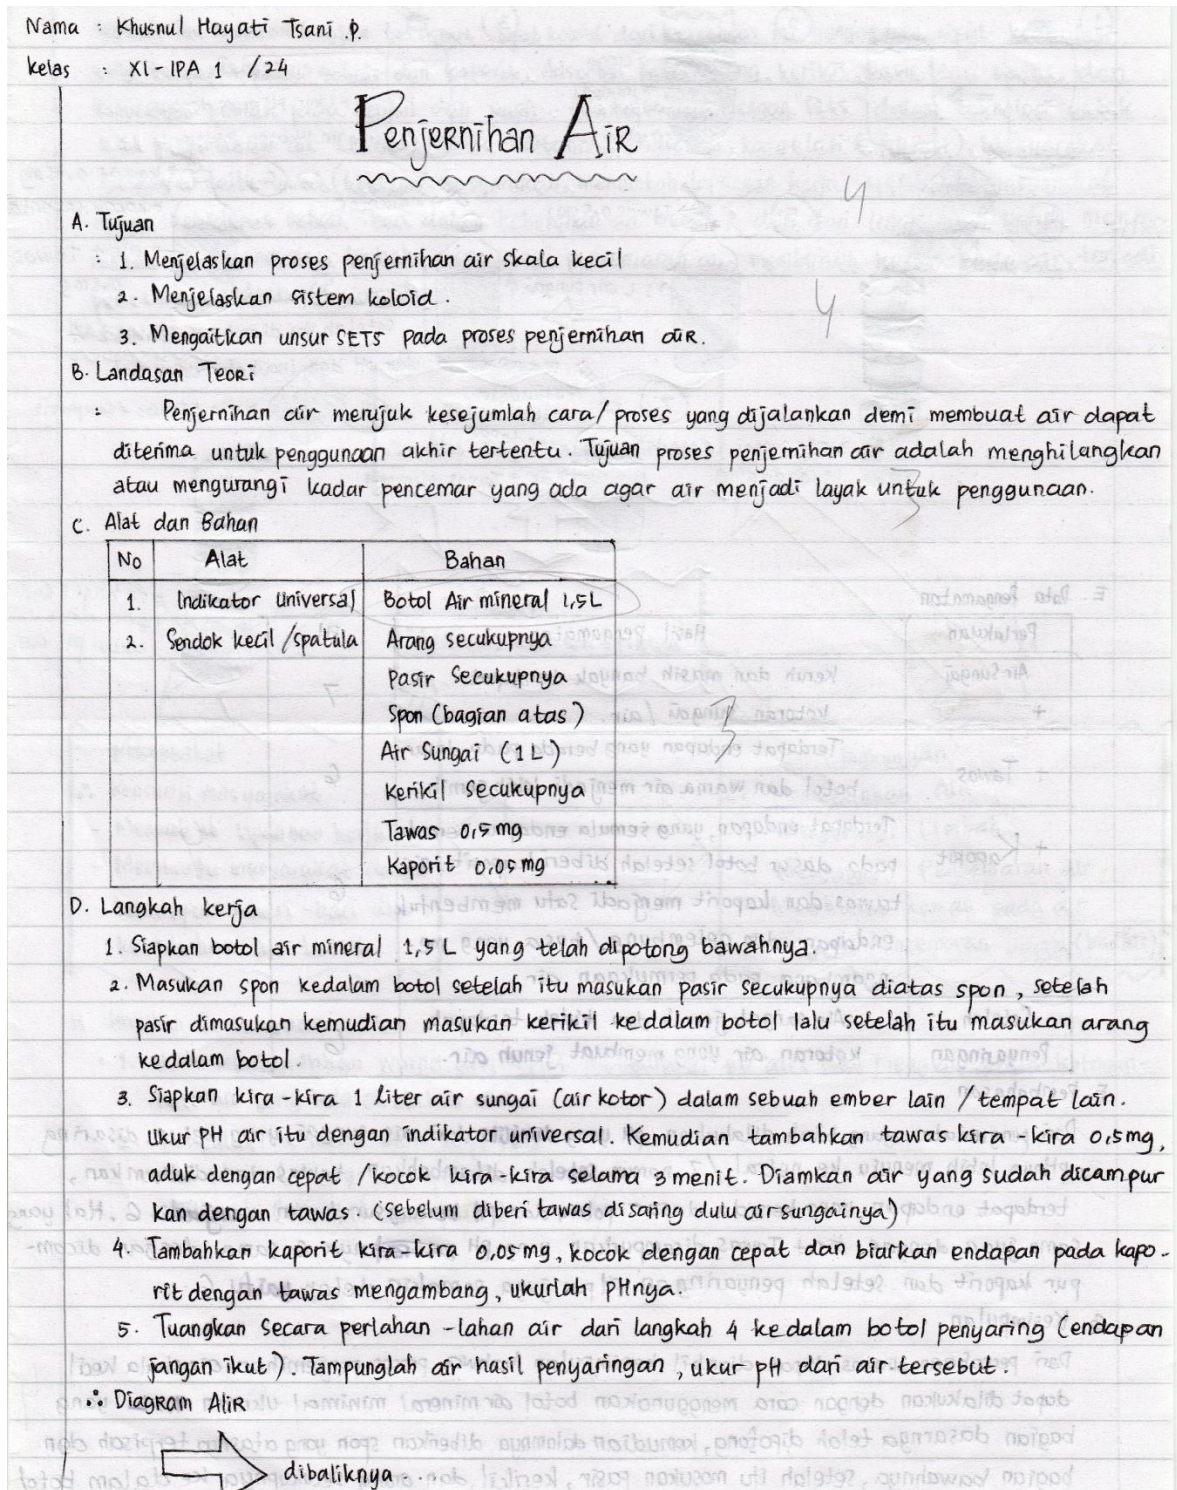 Nama : Khusnul Hayati Tsani .P.
Kelas : XI-IPA 1 /24
Penjernihan Air
4
A. Tujuan
: 1. Menjelaskan proses penjernihan air skala kecil
2. Menjelaskan sistem koloid.
4
3. Mengaitkan unsur SETS pada proses penjernihan air.
B. Landasan Teori
: Penjernihan air merujuk kesejumlah cara/proses yang dijalankan demi membuat air dapat
diterima untuk penggunaan akhir tertentu. Tujuan proses penjernihan air adalah menghilangkan
atau mengurangi kadar pencemar yang ada agar air menjadi layak untuk penggunaan.
3
C. Alat dan Bahan
No Alat Bahan
1. Indikator Universal Botol Air mineral 1,5L
2. Sendok kecil /spatula Arang secukupnya
Pasir Secukupnya
Spon (bagian atas)
3
Air Sungai (1 L)
Kerikil Secukupnya
Tawas 0,5 mg
Kaporit 0,05 mg
D. Langkah kerja
1. Siapkan botol air mineral 1,5 L yang telah dipotong bawahnya.
2. Masukan spon kedalam botol setelah itu masukan pasir secukupnya diatas spon, setelah
pasir dimasukan kemudian masukan kerikil kedalam botol lalu setelah itu masukan arang
kedalam botol.
3. Siapkan kira-kira 1 liter air sungai (air kotor) dalam sebuah ember lain / tempat lain.
Ukur PH air itu dengan indikator universal. Kemudian tambahkan tawas kira-kira 0,5mg,
aduk dengan cepat /kocok kira-kira selama 3 menit. Diamkan air yang sudah dicampur
kan dengan tawas. (Sebelum diberi tawas disaring dulu air sungainya)
4. Tambahkan kaporit kira-kira 0,05 mg, kocok dengan cepat dan biarkan endapan pada kapo-
rit dengan tawas mengambang, ukurlah pHnya.
5. Tuangkan Secara perlahan-lahan air dari langkah 4 kedalam botol penyaring (endapan
jangan ikut). Tampunglah air hasil penyaringan, ukur pH dari air tersebut.
∴ Diagram Alir
dibaliknya...